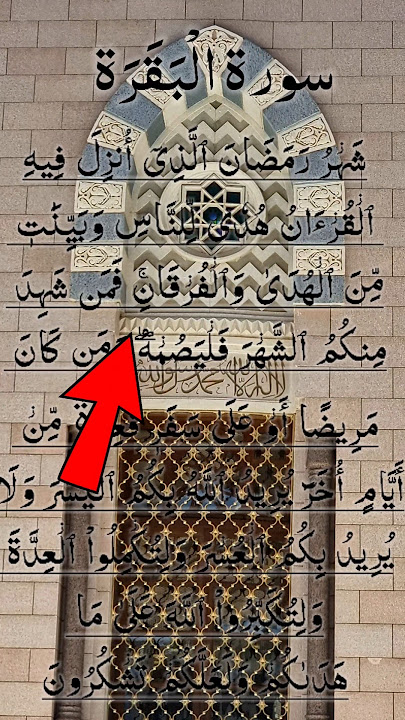 سورة الْبَقَرَة
شَهْرُ رَمَضَانَ ٱلَّذِىٓ أُنزِلَ فِيهِ
ٱلْقُرْءَانُ هُدًى لِّلنَّاسِ وَبَيِّنَٰتٍ
مِّنَ ٱلْهُدَىٰ وَٱلْفُرْقَانِ ۚ فَمَن شَهِدَ
مِنكُمُ ٱلشَّهْرَ فَلْيَصُمْهُ ۖ وَمَن كَانَ
لا إله إلا الله محمد رسول الله
مَرِيضًا أَوْ عَلَىٰ سَفَرٍ فَعِدَّةٌ مِّنْ
أَيَّامٍ أُخَرَ ۗ يُرِيدُ ٱللَّهُ بِكُمُ ٱلْيُسْرَ وَلَا
يُرِيدُ بِكُمُ ٱلْعُسْرَ وَلِتُكْمِلُوا۟ ٱلْعِدَّةَ
وَلِتُكَبِّرُوا۟ ٱللَّهَ عَلَىٰ مَا
هَدَىٰكُمْ وَلَعَلَّكُمْ تَشْكُرُونَ